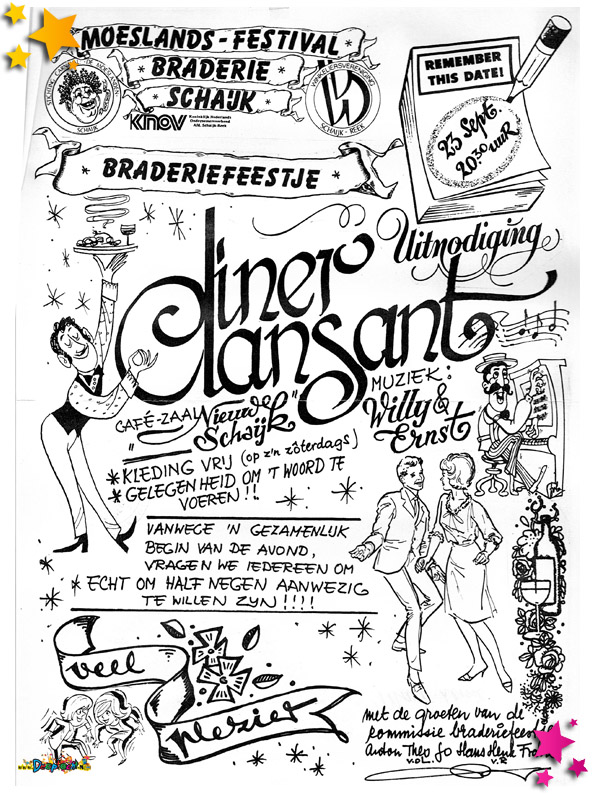 MOESLANDS-FESTIVAL
BRADERIE
SCHAIJK
KNOV
Koninklijk Nederlands
Ondernemersverbond
Afd. Schaijk-Reek
SCHAIJK
WINKELIERSVERENIGING
SCHAIJK - REEK
REMEMBER
THIS DATE!
23 Sept.
20.30 uur
BRADERIEFEESTJE
Uitnodiging
diner
dansant
CAFÉ-ZAAL "Nieuw
Schaijk"
MUZIEK:
Willy &
Ernst
* KLEDING VRIJ (op z'n zôterdags)
* GELEGENHEID OM 'T WOORD TE
VOEREN!!
VANWEGE 'N GEZAMENLIJK
BEGIN VAN DE AVOND,
VRAGEN WE IEDEREEN OM
* ECHT OM HALF NEGEN AANWEZIG
TE WILLEN ZYN!!!!
veel
plezier
met de groeten van de
kommissie braderiefeest
Anton Theo Jo Hans Henk
v.d.L. v.R